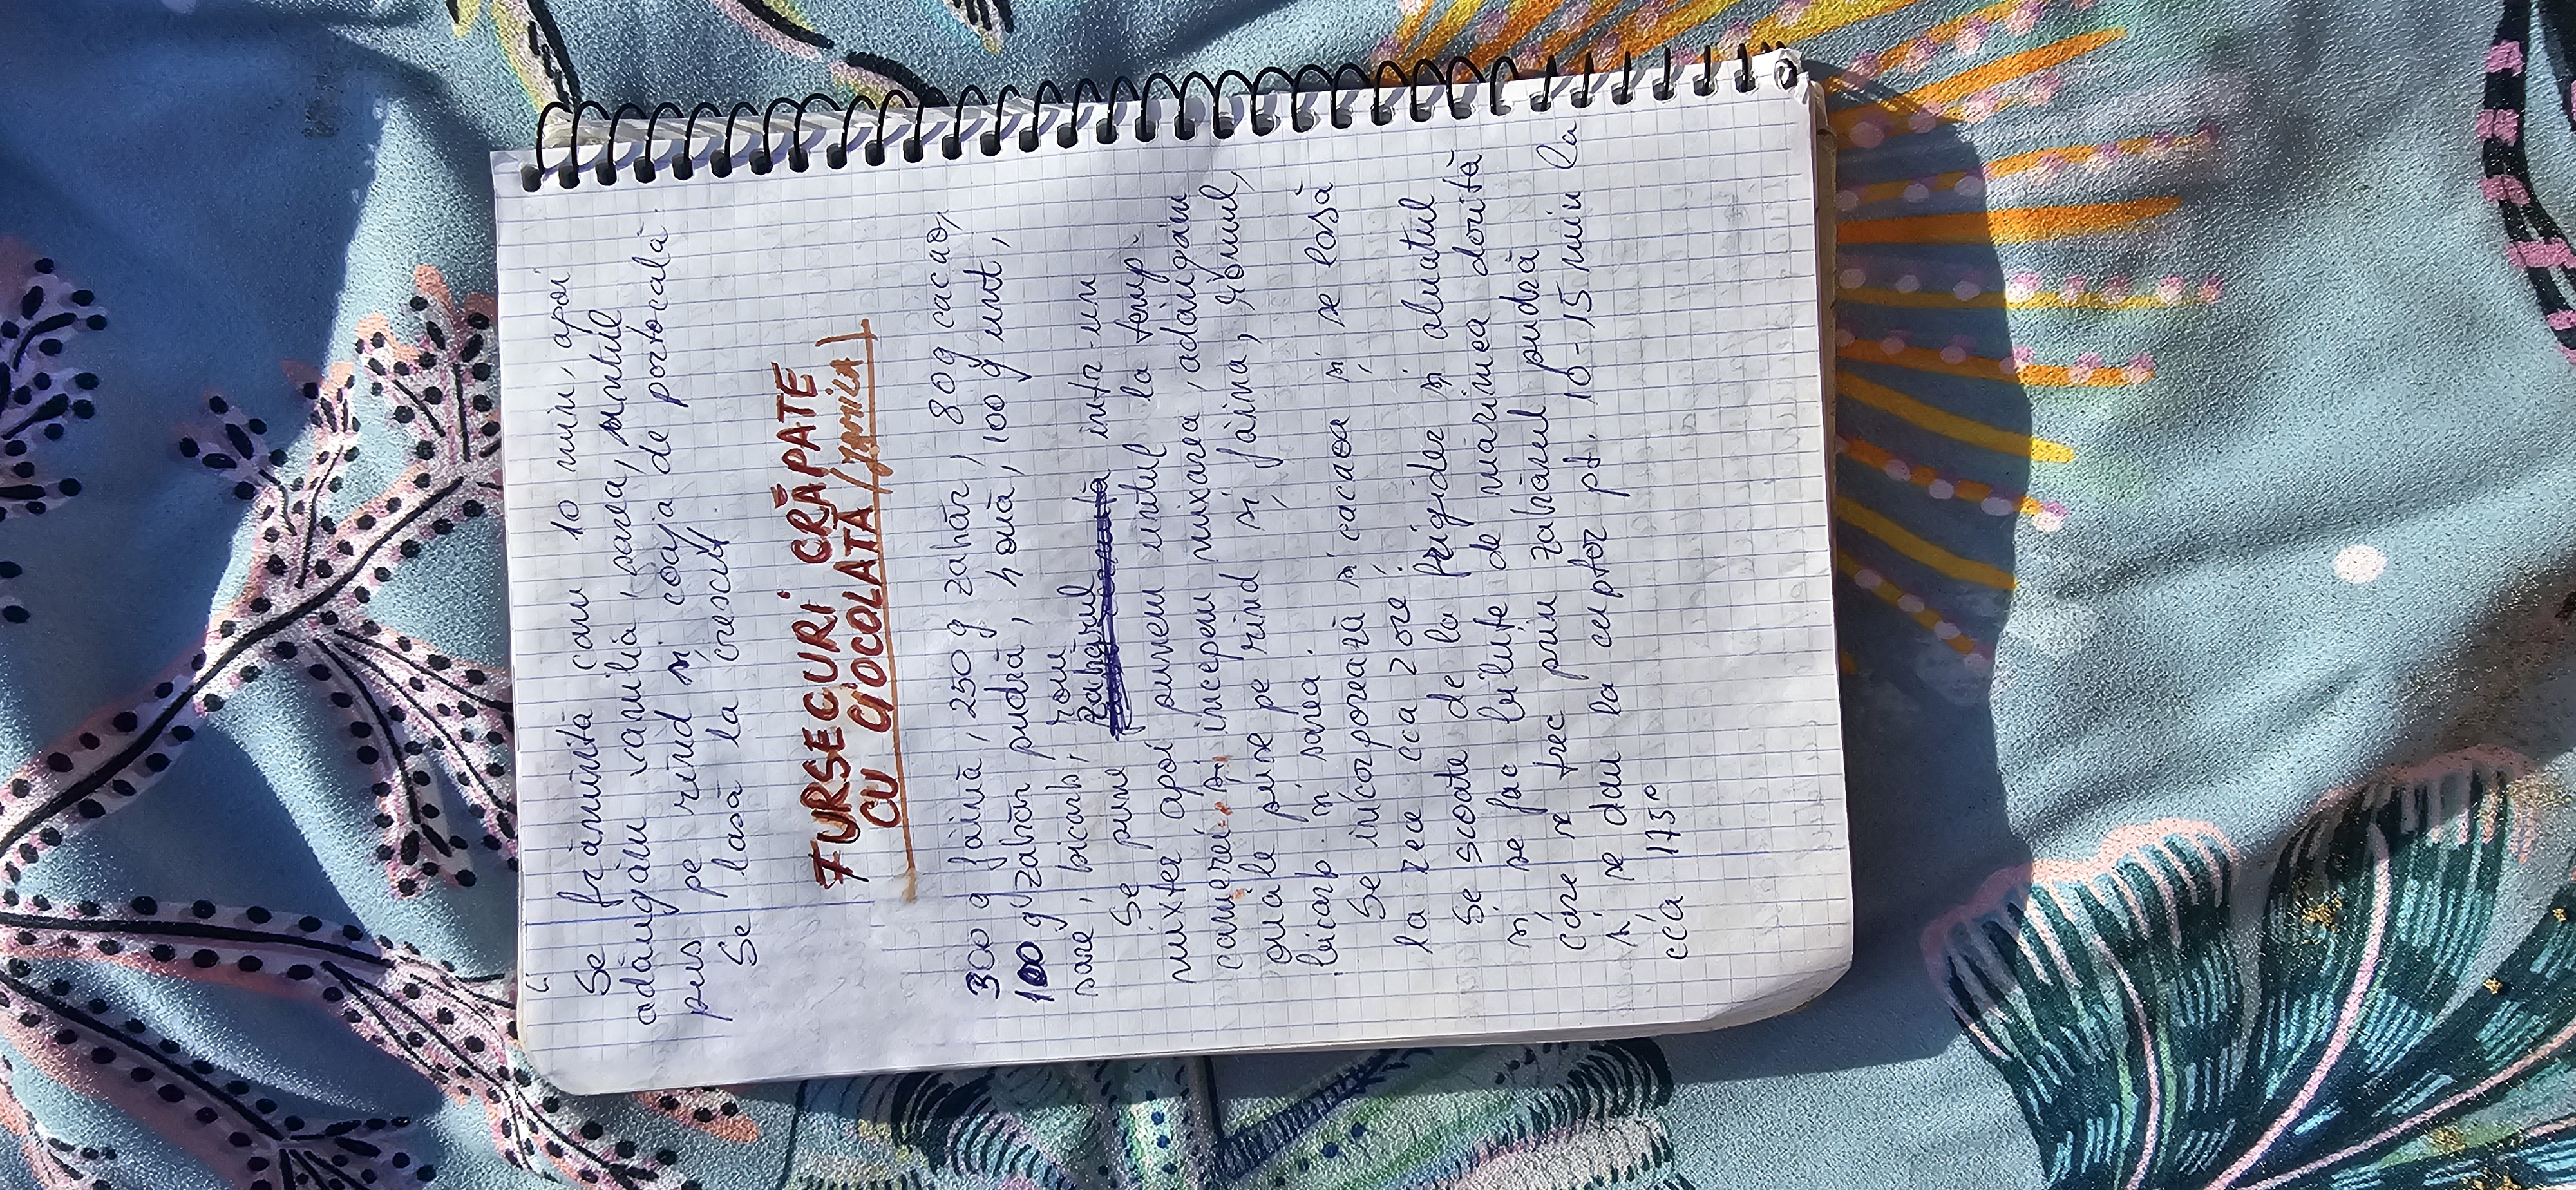 Se frămîntă cam 10 min, apoi
adăugăm vanilia, sarea, untul
pus pe rînd și coaja de portocală.
Se lasă la crescut.
FURSECURI CRĂPATE
CU CIOCOLATĂ (JAMILA)
300 g făină, 250 g zahăr, 80 g cacao,
100 g zahăr pudră, 4 ouă, 100 g unt,
sare, bicarb, rom
Se pune zahărul într-un
mixter apoi punem untul la temp.
camerei și începem mixarea, adăugăm
ouăle puse pe rînd și făina, romul,
bicarb. și sarea.
Se incorporează și cacaoa și se lasă
la rece cca 2 ore.
Se scoate de la frigider și aluatul
și se fac biluțe de mărimea dorită
care se trec prin zahărul pudră
și se dau la cuptor pt. 10-15 min la
cca 175°